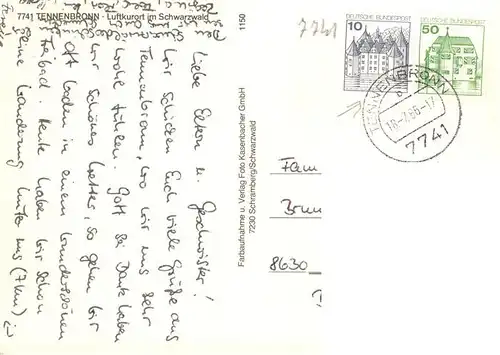 7741 TENNENBRONN · Luftkurort im Schwarzwald
Liebe Eltern u. Geschwister!
Wir schicken Euch viele Grüße aus
Tennenbronn, wo wir uns sehr
wohl fühlen. Gott sei Dank haben
wir schönes Wetter, so gehen wir
oft baden in einem wunderschönen
Freibad. Heute haben wir schon
eine Wanderung hinter uns (7 km)
1150
Farbaufnahme u. Verlag Foto Kasenbacher GmbH
7230 Schramberg/Schwarzwald
7741
DEUTSCHE BUNDESPOST
10
DEUTSCHE BUNDESPOST
50
TENNENBRONN
7741
Fam
8630